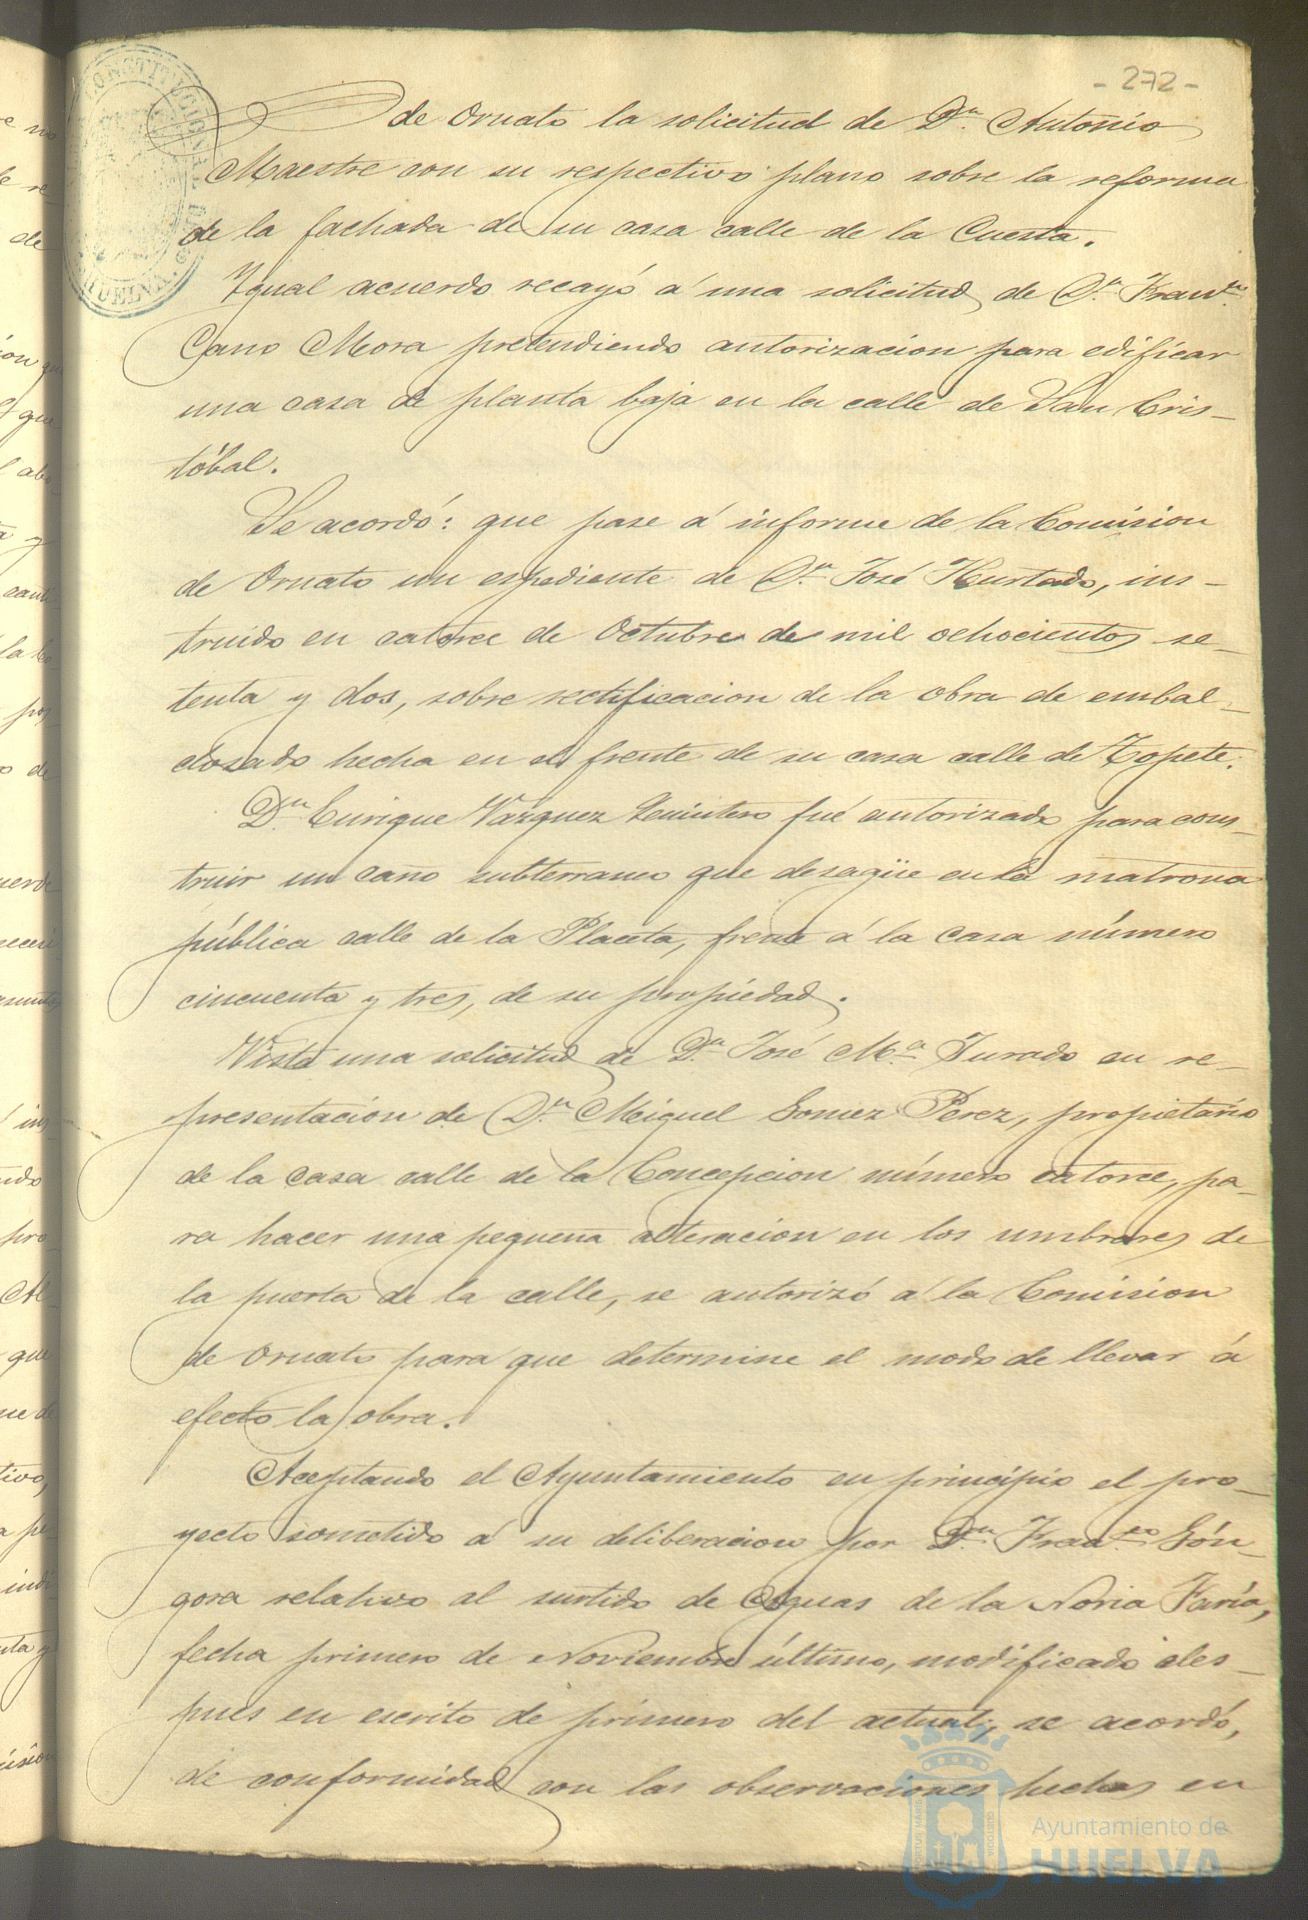 - 272 -
de Ornato la solicitud de Dn. Antonio
Maestre con su respectivo plano sobre la reforma
de la fachada de su casa calle de la Cuesta.
Igual acuerdo recayó á una solicitud de Dn. Franco.
Cano Mora pretendiendo autorizacion para edificar
una casa de planta baja en la calle de San Cris-
tóbal.
Se acordó: que pase á informe de la Comision
de Ornato un espediente de Dn. José Hurtado, ins-
truido en catorce de Octubre de mil ochocientos se-
tenta y dos, sobre rectificacion de la obra de embal-
dosado hecha en el frente de su casa calle de Topete.
Dn. Enrique Vazquez fué autorizado para cons-
truir un caño subterraneo que desagüe en la matrona
pública calle de la Placeta, frente á la casa número
cincuenta y tres, de su propiedad.
Vista una solicitud de Dn. José Ma. Jurado en re-
presentacion de Dn. Miguel Gomez Perez, propietario
de la casa calle de la Concepcion número catorce, pa-
ra hacer una pequeña alteracion en los umbrales de
la puerta de la calle, se autorizó á la Comision
de Ornato para que determine el modo de llevar á
efecto la obra.
Aceptando el Ayuntamiento en principio el pro-
yecto sometido á su deliberacion por Dn. Franco. Gón-
gora relativo al surtido de Aguas de la Noria Faría,
fecha primero de Noviembre último, modificado des-
pues en escrito de primero del actual, se acordó,
de conformidad con las observaciones hechas en
CONSTITUCIONAL
HUELVA
Ayuntamiento de
HUELVA